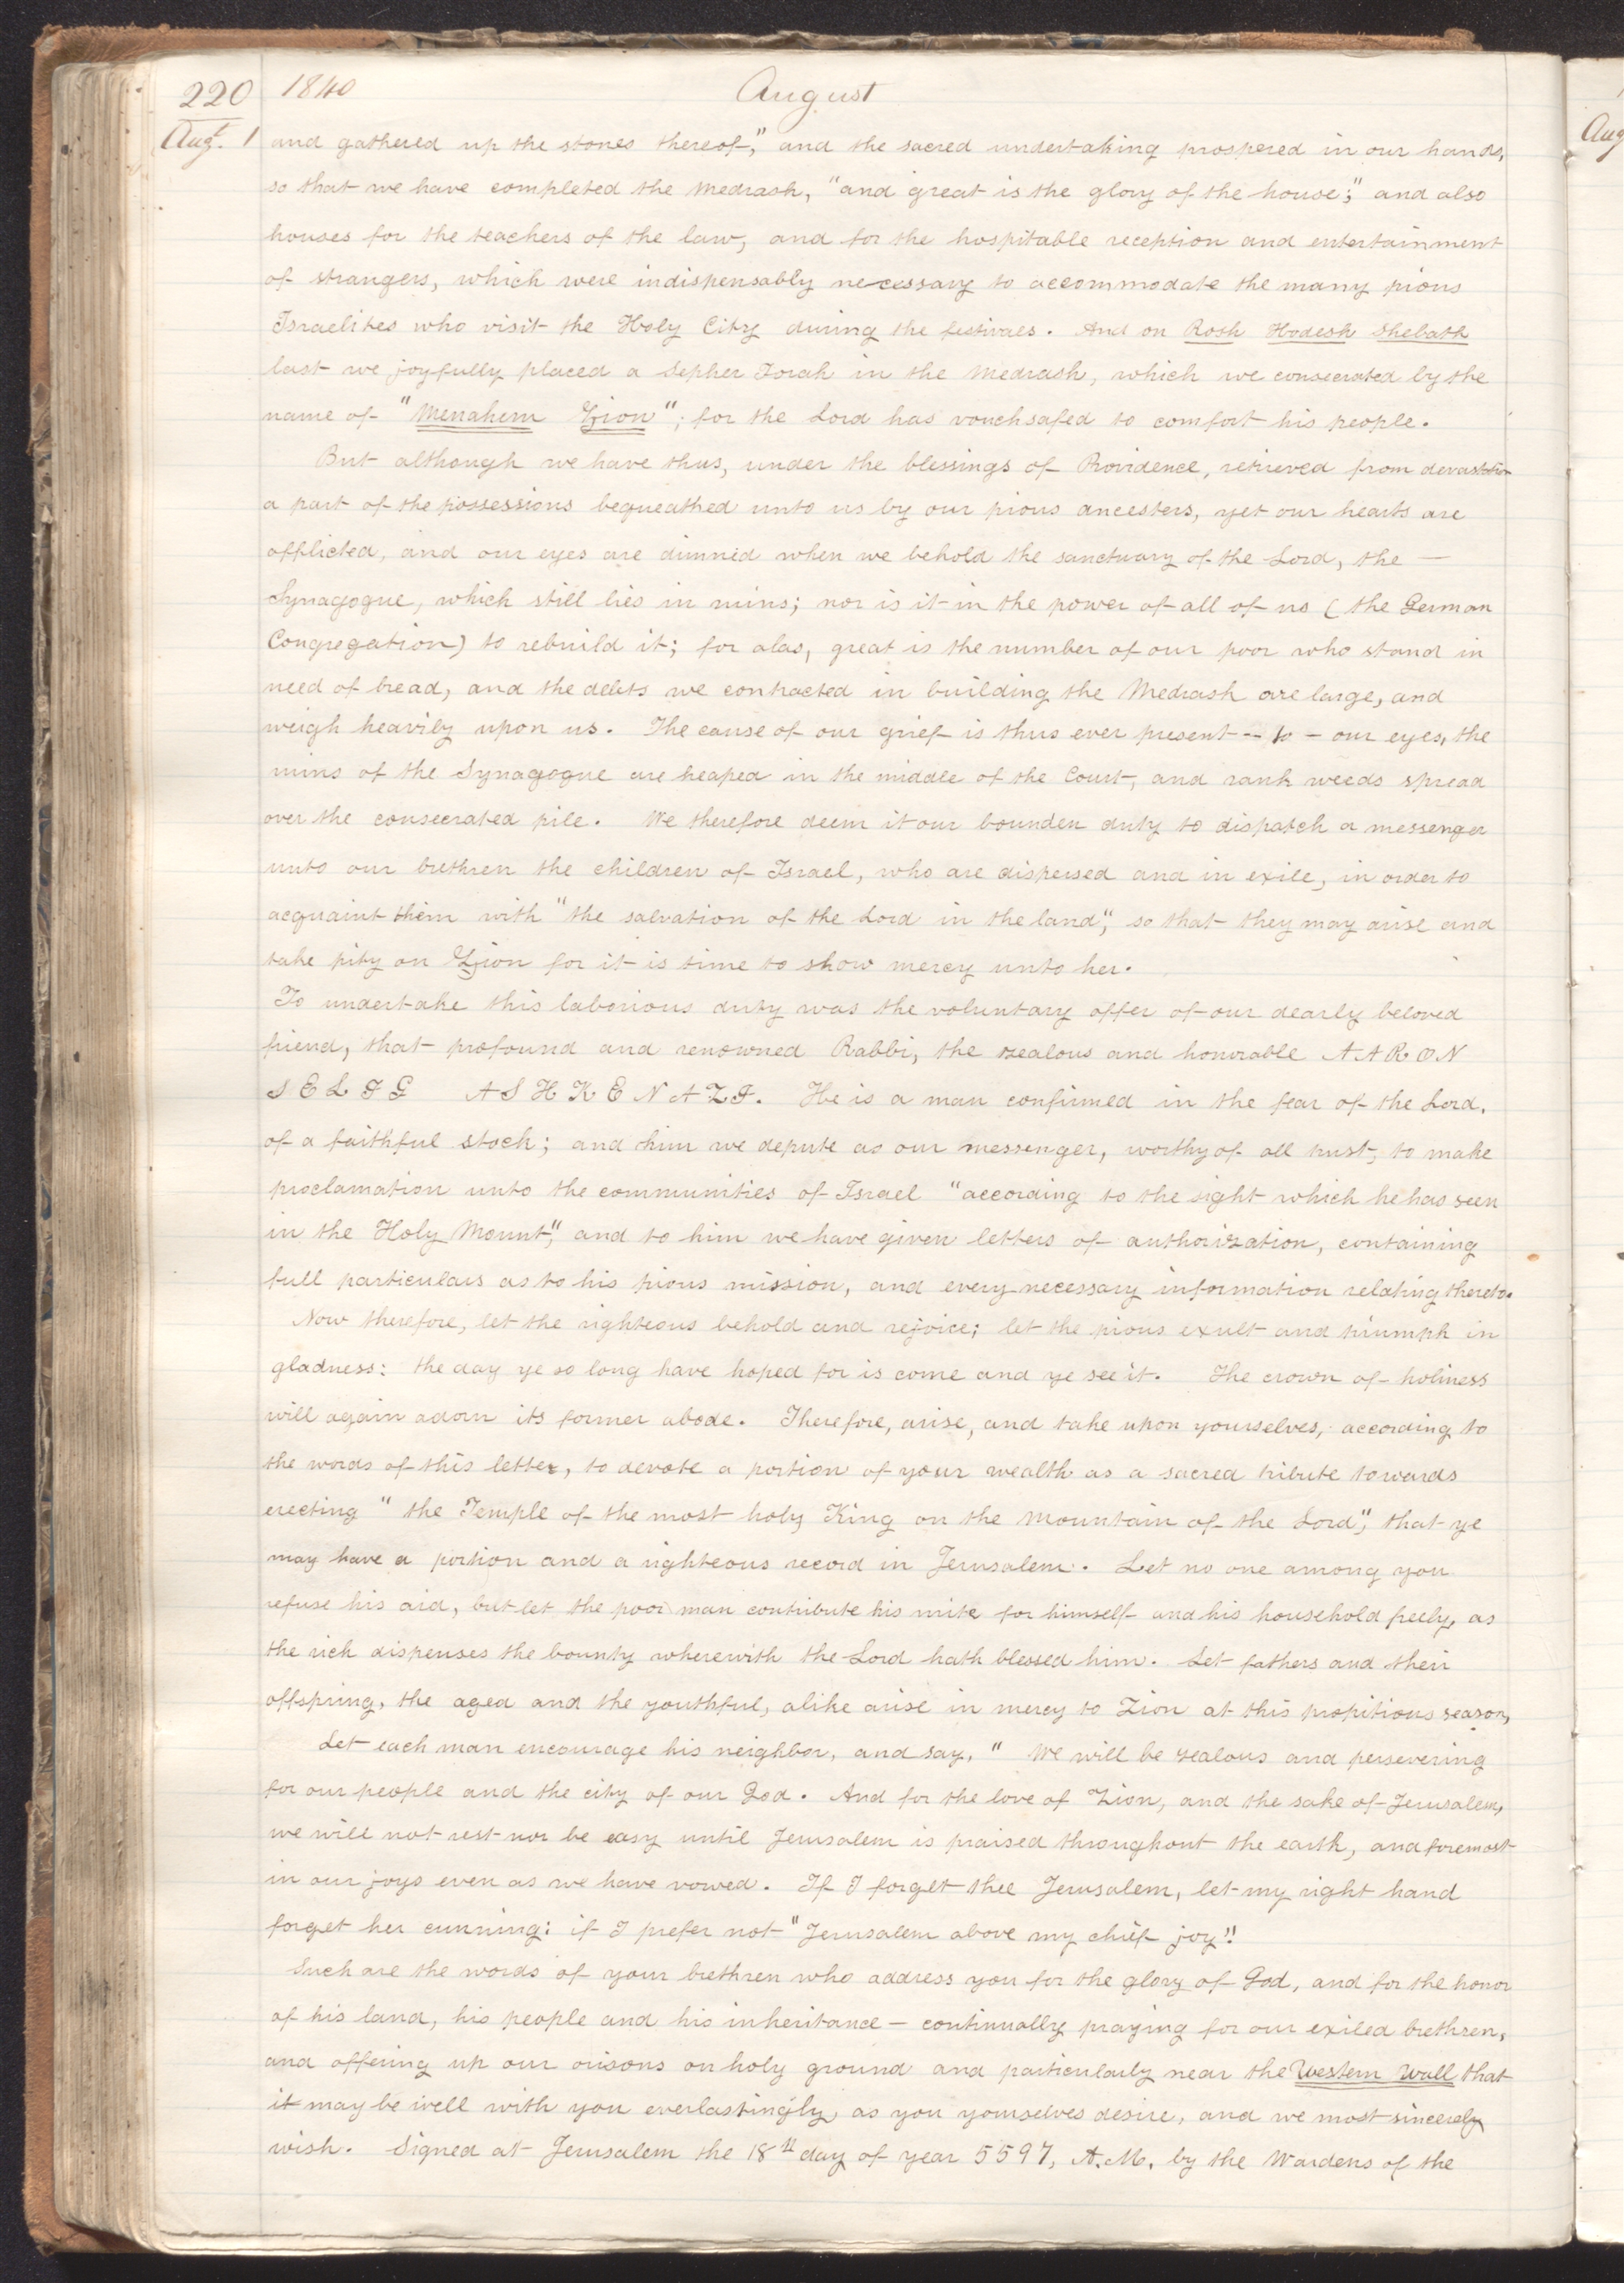 220 1840 August
Augt. 1 and gathered up the stones thereof," and the sacred undertaking prospered in our hands,
so that we have completed the Medrash, "and great is the glory of the house;" and also
houses for the teachers of the law, and for the hospitable reception and entertainment
of strangers, which were indispensably necessary to accommodate the many pious
Israelites who visit the Holy City during the festivals. And on Rosh Hodesh Shebath
last we joyfully placed a Sepher Torah in the Medrash, which we consecrated by the
name of "Menahem Zion"; for the Lord has vouchsafed to comfort his people.
But although we have thus, under the blessings of Providence, retrieved from devastation
a part of the possessions bequeathed unto us by our pious ancesters, yet our hearts are
afflicted, and our eyes are dimned when we behold the sanctuary of the Lord, the —
Synagogue, which still lies in ruins; nor is it in the power of all of us (the German
Congregation) to rebuild it; for alas, great is the number of our poor who stand in
need of bread, and the debts we contracted in building the Medrash are large, and
weigh heavily upon us. The cause of our grief is thus ever present -- to - our eyes, the
ruins of the Synagogue are heaped in the middle of the Court, and rank weeds spread
over the consecrated pile. We therefore deem it our bounden duty to dispatch a messenger
unto our brethren the children of Israel, who are dispersed and in exile, in order to
acquaint them with "the salvation of the Lord in the land", so that they may arise and
take pity on Zion for it is time to show mercy unto her.
To undertake this laborious duty was the voluntary offer of our dearly beloved
friend, that profound and renowned Rabbi, the zealous and honorable AARON
SELIG ASHKENAZI. He is a man confirmed in the fear of the Lord,
of a faithful stock; and him we depute as our messenger, worthy of all trust, to make
proclamation unto the communities of Israel "according to the sight which he has seen
in the Holy Mount", and to him we have given letters of authorization, containing
full particulars as to his pious mission, and every necessary information relating thereto.
Now therefore, let the righteous behold and rejoice; let the pious exult and triumph in
gladness: the day ye so long have hoped for is come and ye see it. The crown of holiness
will again adorn its former abode. Therefore, arise, and take upon yourselves, according to
the words of this letter, to devote a portion of your wealth as a sacred tribute towards
erecting "the Temple of the most holy King on the Mountain of the Lord", that ye
may have a portion and a righteous record in Jerusalem. Let no one among you
refuse his aid, but let the poor man contribute his mite for himself and his household freely, as
the rich dispenses the bounty wherewith the Lord hath blessed him. Let fathers and their
offspring, the aged and the youthful, alike arise in mercy to Zion at this propitious season,
Let each man encourage his neighbor, and say, "We will be zealous and persevering
for our people and the city of our God. And for the love of Zion, and the sake of Jerusalem,
we will not rest nor be easy until Jerusalem is praised throughout the earth, and foremost
in our joys even as we have vowed. If I forget thee Jerusalem, let my right hand
forget her cunning: if I prefer not "Jerusalem above my chief joy"!
Such are the words of your brethren who address you for the glory of God, and for the honor
of his land, his people and his inheritance — continually praying for our exiled brethren,
and offering up our orisons on holy ground and particularly near the Western Wall that
it may be well with you everlastingly, as you yourselves desire, and we most sincerely
wish. Signed at Jerusalem the 18th day of year 5597, A.M. by the Wardens of the
Aug